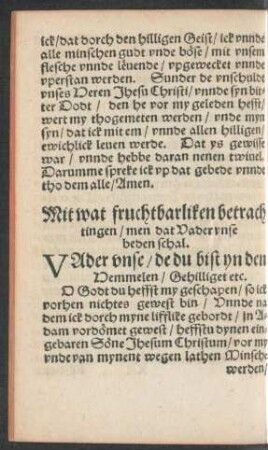 ick/dat dorch den hilligen Geist/ick vnnde
alle minschen gudt vnde böse/mit vnsem
flesche vnnde lëuende/vpgewecket vnnde
vperstan werden. Sunder de vnschuldt
vnses Heren Jhesu Christi/vnnde syn bit-
ter Dodt/den he vor my geleden hefft/
wert my thogemeten werden/vnde myn
syn/dat ick mit em/vnnde allen hilligen/
ewichlick leuen werde. Dat ys gewisse
war/vnnde hebbe daran nenen twiuel.
Darumme spreke ick vp dat gebede vnnde
tho dem alle/Amen.
Mit wat fruchtbarliken betrach
tingen/men dat Vader vnse
beden schal.
VAder vnse/de du bist yn den
Hemmelen/Gehilliget etc.
O Godt du heffst my geschapen/so ick
vorhen nichtes gewest bin/Vnnde na
dem ick dorch myne lifflike gebordt/jn A-
dam vordömet gewest/heffstu dynen ein-
gebaren Söne Jhesum Christum/vor my
vnde van mynent wegen lathen Minsche
werden/